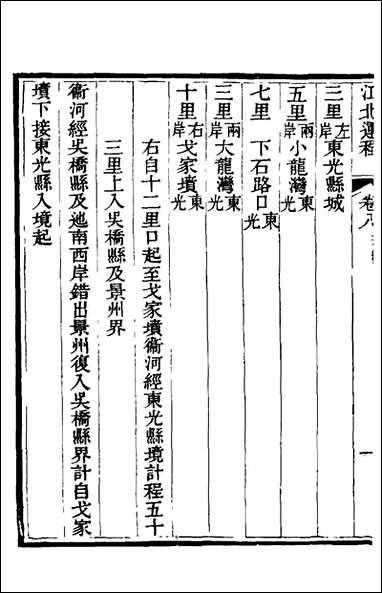 江北運程　卷八
三里左岸東光縣城
五里兩岸小龍灣東光
七里　下石路口東光
三里兩岸大龍灣東光
十里右岸戈家墳東光
右自十二里口起至戈家墳衞河經東光縣境計程五十
三里上入吳橋縣及景州界
衞河經吳橋縣及迆南西岸錯出景州復入吳橋縣界計自戈家
墳下接東光縣入境起